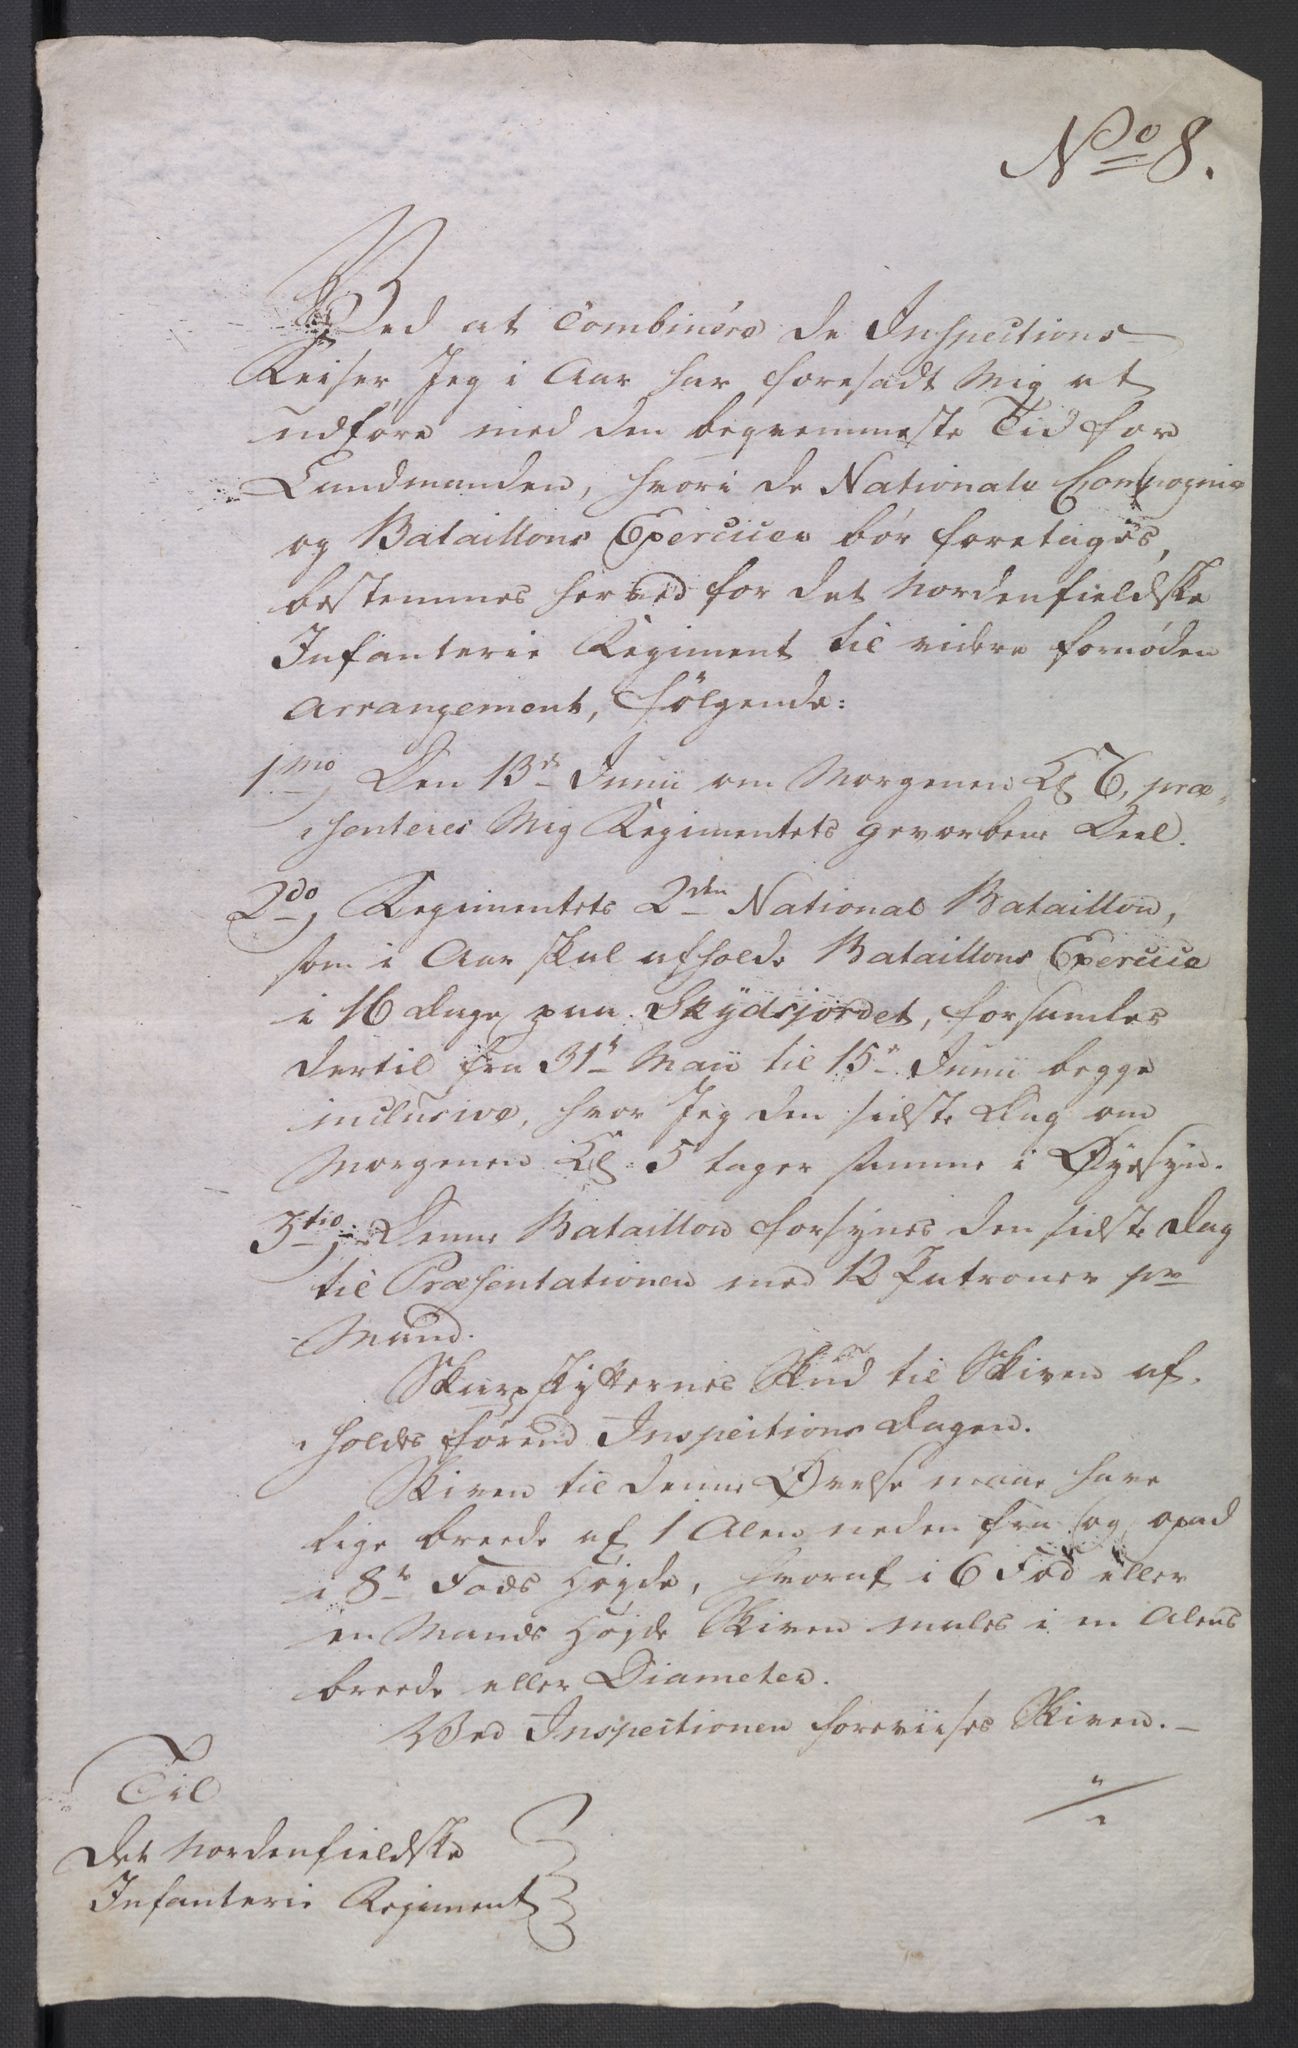 No 8.
Ved at Combinere de Inspections
Reiser Jeg i Aar har foresadt Mig at
udføre med den beqvemmeste Tid for
Landmanden, hvori de Nationale Compagnie
og Bataillons Exercicer bør foretages,
bestemmes herved for det Nordenfieldske
Infanterie Regiment til videre fornøden
Arrangement, følgende:
1mo, Den 13de Junii om Morgenen Kl 6, præ-
senteres Mig Regimentets gevorbene Deel.
2do, Regimentets 2den National Bataillon,
som i Aar skal afholde Bataillons Exercice
i 16 Dage paa Skydsjordet, forsamles
dertil fra 31te Maii til 15de Junii begge
inclusive, hvor Jeg den sidste Dag om
Morgenen Kl 5 tager samme i Øyesyn.
3tio, Denne Bataillon forsynes den sidste Dag
til Præsentationen med 12 Patroner pr
Mand.
Skarpskytternes Skud til Skiven af-
holdes førend Inspections Dagen.
Skiven til denne Øvelse maae have
lige breede af 1 Alen neden fra og opad
i 8te Fods Høyde, hvoraf i 6 Fod eller
en Mands Høyde Skiven males i en Alens
breede eller Diameter.
Ved Inspectionen foreviises Skiven.
Til
Det Nordenfieldske
Infanterie Regiment